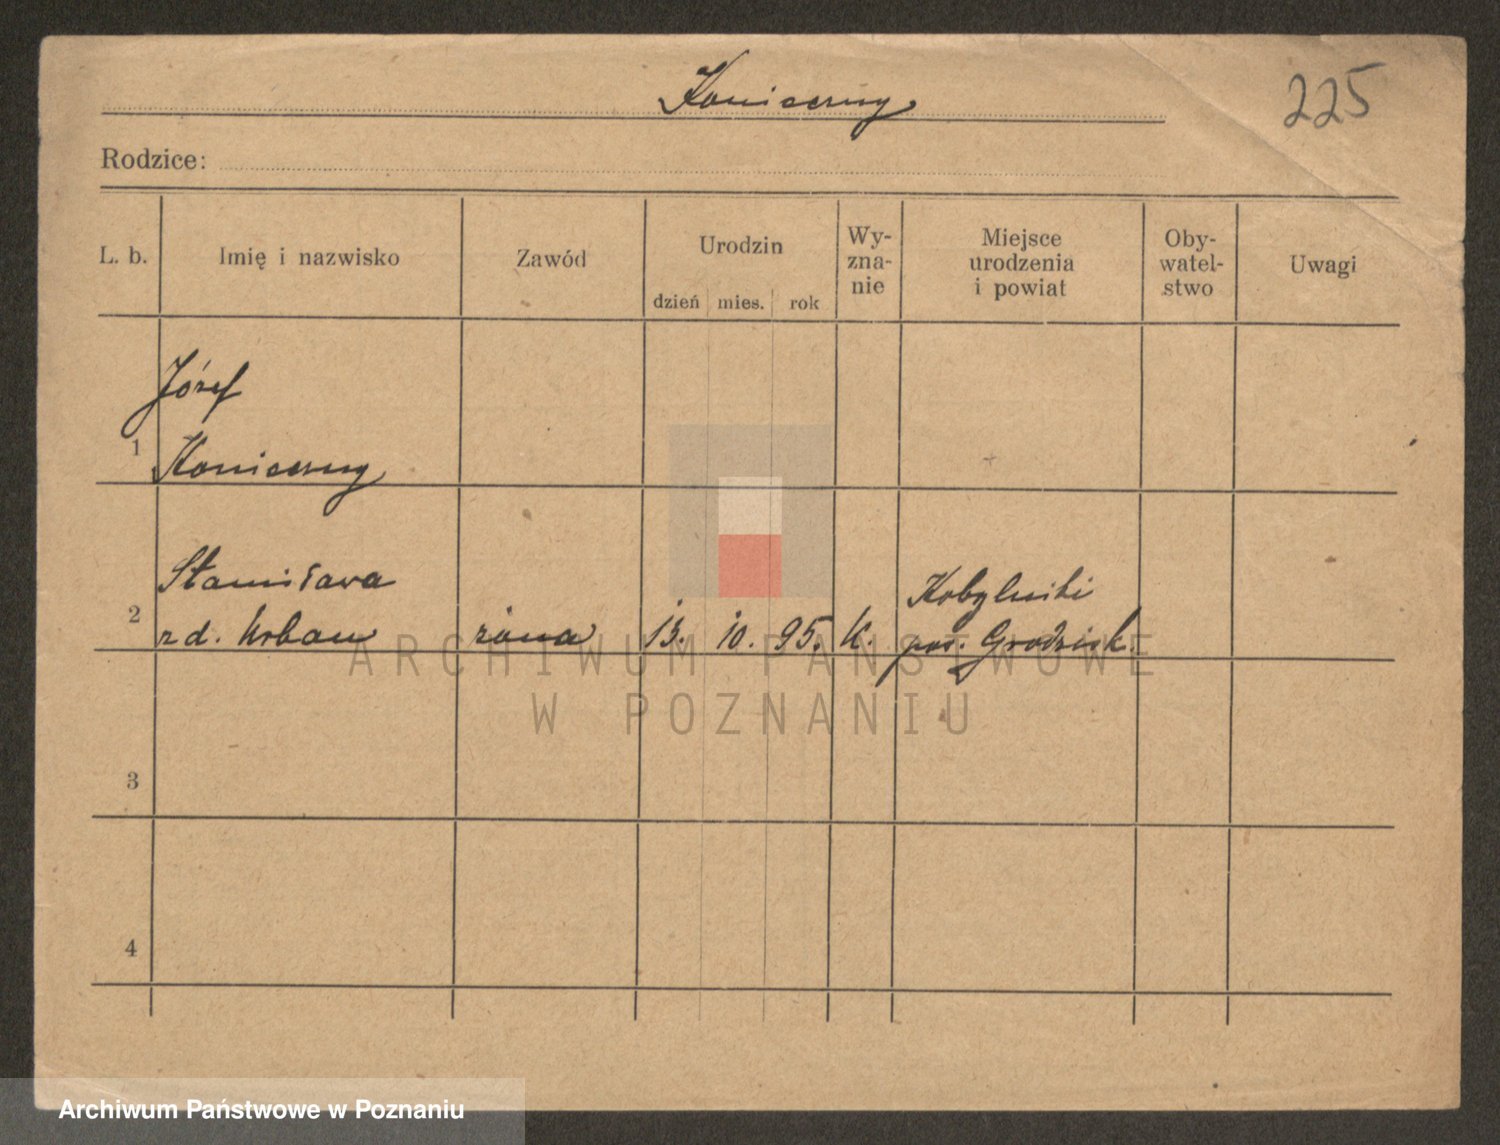 Konieczny
225
Rodzice:
L. b.
Imię i nazwisko
Zawód
Urodzin
dzień
mies.
rok
Wy-
zna-
nie
Miejsce
urodzenia
i powiat
Oby-
watel-
stwo
Uwagi
Józef
1
Konieczny
Stanisława
2
zd. Urban
żona
13.
10.
95.
K.
Kobylniki
pow. Grodzisk.
3
4
ARCHIWUM PAŃSTWOWE
W POZNANIU
Archiwum Państwowe w Poznaniu